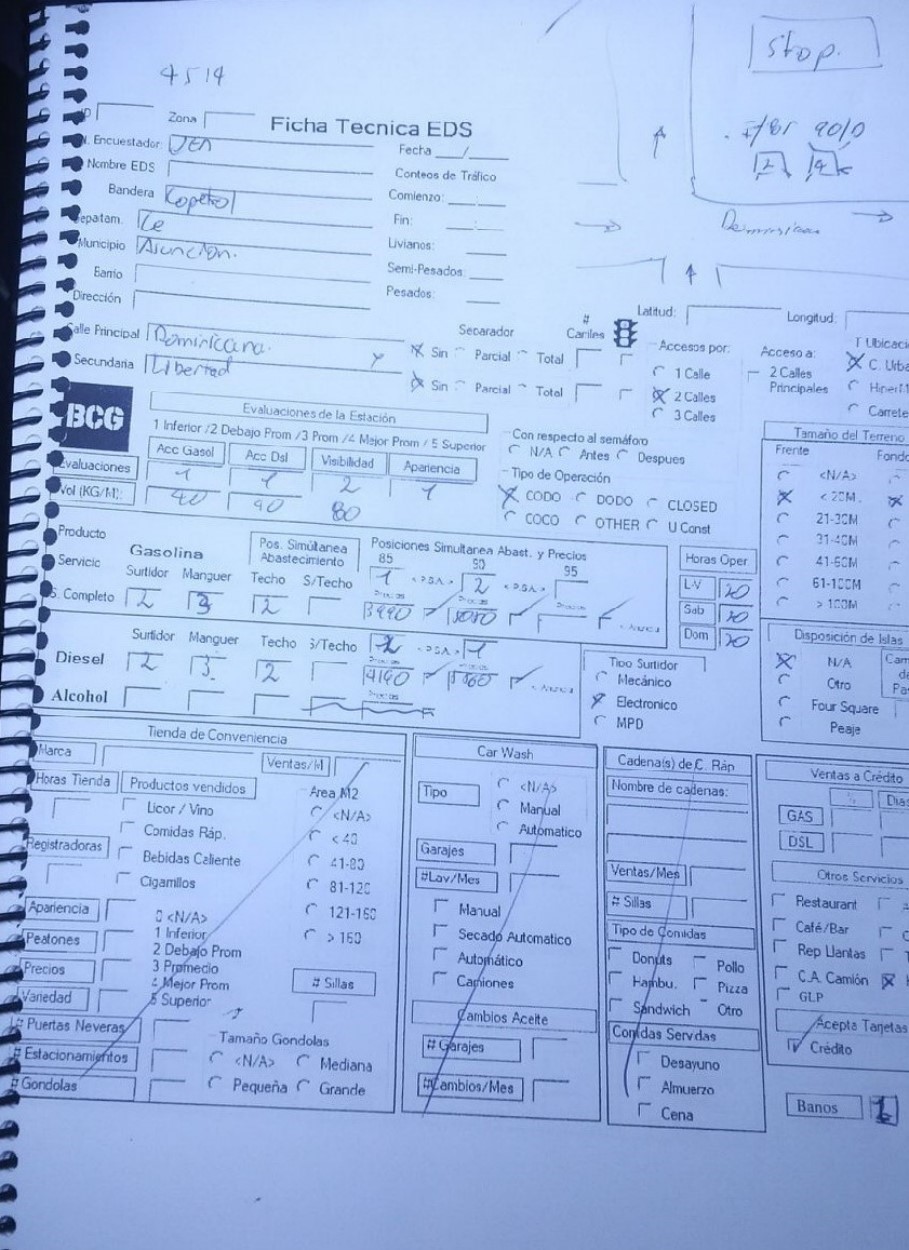 4514
stop.
Zona
Ficha Tecnica EDS
N. Encuestador: JEN
Fecha ___/___
Nombre EDS
Conteos de Tráfico
Bandera Copetrol
Comienzo: ___:___
Depatam. Ce
Fin: ___:___
Municipio Asuncion.
Livianos: ___
Barrio
Semi-Pesados: ___
Dirección
Pesados: ___
Latitud:
Longitud:
Calle Principal Dominicana. y
Secundaria Libertad
Separador
# Carriles
Sin Parcial Total
Sin Parcial Total
Accesos por:
1 Calle
2 Calles
3 Calles
Acceso a:
2 Calles Principales
C. Urba
Carrete
BCG
Evaluaciones de la Estación
1 Inferior /2 Debajo Prom /3 Prom /4 Mejor Prom / 5 Superior
Acc Gasol Acc Dsl Visibilidad Apariencia
Evaluaciones 1 1 2 1
Vol (KG/M): 40 40 80
Con respecto al semáforo
N/A Antes Despues
Tipo de Operación
CODO DODO CLOSED
COCO OTHER U Const
Tamaño del Terreno
Frente Fondo
<N/A>
< 20M.
21-30M
31-40M
41-60M
61-100M
> 100M
Producto
Servicio
Gasolina
Pos. Simultanea Abastecimiento
Posiciones Simultanea Abast. y Precios
85 90 95
Surtidor Manguer Techo S/Techo
1 2
S. Completo 2 3 2
Horas Oper
L-V 20
Sab 20
Dom 20
Surtidor Manguer Techo S/Techo
Diesel 2 3 2
Alcohol
Tipo Surtidor
Mecánico
Electronico
MPD
Disposición de Islas
N/A
Otro
Four Square
Peaje
Tienda de Conveniencia
Marca
Ventas/M
Horas Tienda
Productos vendidos
Licor / Vino
Comidas Ráp.
Bebidas Caliente
Cigarrillos
Registradoras
Area M2
<N/A>
< 40
41-80
81-120
121-160
> 160
Apariencia
Peatones
Precios
Variedad
0 <N/A>
1 Inferior
2 Debajo Prom
3 Promedio
4 Mejor Prom
5 Superior
# Sillas
# Puertas Neveras
# Estacionamientos
# Gondolas
Tamaño Gondolas
<N/A> Mediana
Pequeña Grande
Car Wash
Tipo
<N/A>
Manual
Automatico
Garajes
#Lav/Mes
Manual
Secado Automatico
Automático
Camiones
Cambios Aceite
# Garajes
#Cambios/Mes
Cadena(s) de C. Ráp
Nombre de cadenas:
Ventas/Mes
# Sillas
Tipo de Comidas
Donuts Pollo
Hambu. Pizza
Sandwich Otro
Comidas Servidas
Desayuno
Almuerzo
Cena
Ventas a Crédito
% Dias
GAS
DSL
Otros Servicios
Restaurant
Café/Bar
Rep Llantas
C.A. Camión
GLP
Acepta Tarjetas
Crédito
Banos 1